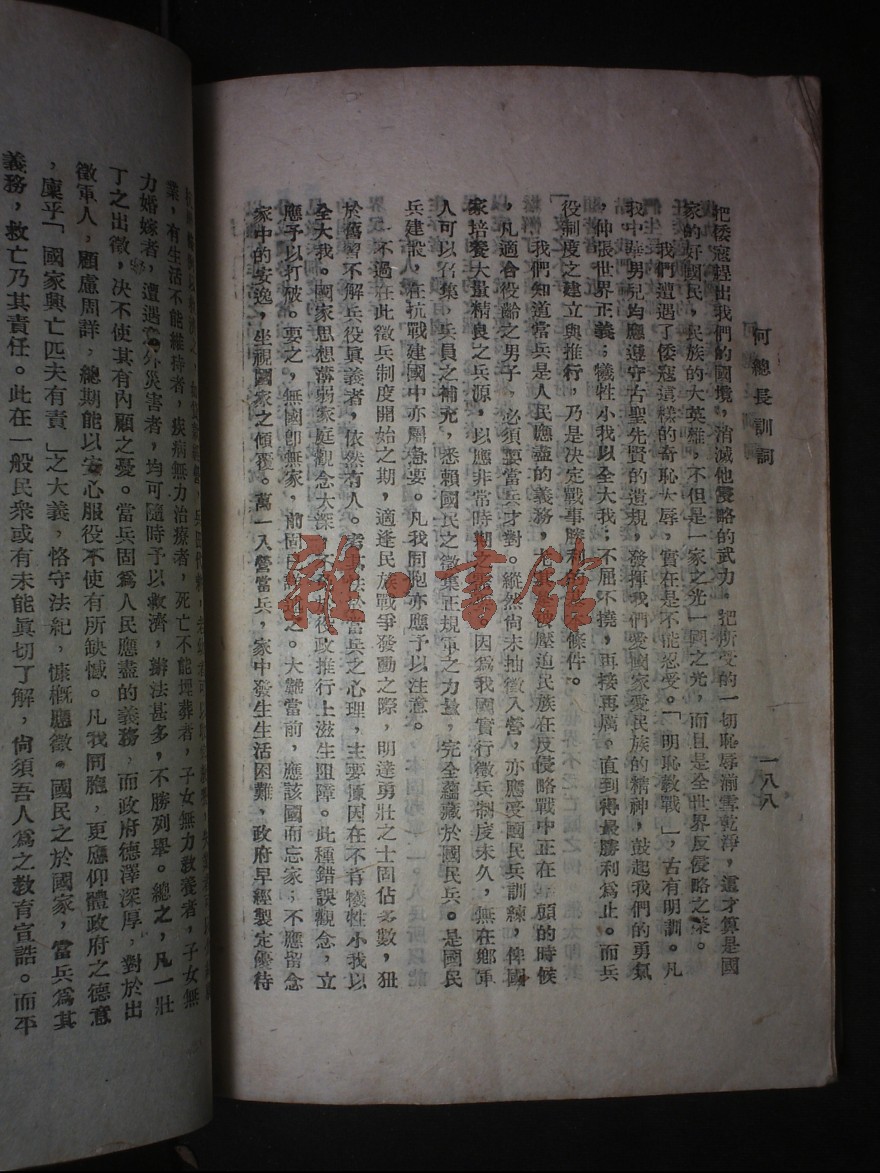 何總長訓詞
一八八
把倭寇趕出我們的國境，消滅他侵略的武力。把所受的一切恥辱湔雪乾淨，這才算是國
家的好國民，民族的大英雄，不但是一家之光，一國之光，而且是全世界反侵略之榮。
我們遭遇了倭寇這樣的奇恥大辱，實在是不能忍受。「明恥教戰」，古有明訓。凡
我中華男兒均應遵守古聖先賢的遺規，發揮我們愛國家愛民族的精神，鼓起我們的勇氣
，伸張世界正義；犧牲小我以全大我；不屈不撓，再接再厲。直到得最勝利為止。而兵
役制度之建立與推行，乃是決定戰事勝利的條件。
我們知道當兵是人民應盡的義務，壓迫民族在反侵略戰中正在頭的時候
，凡適合役齡之男子，必須要當兵才對。縱然尚未抽徵入營，亦應受國民兵訓練，俾國
家培養大量精良之兵源，以應非常時期之。因為我國實行徵兵制度未久，無在鄉軍
人可以召集，兵員之補充，悉賴國民之徵集正規軍之力量，完全蘊藏於國民兵。是國民
兵建設，在抗戰建國中亦屬急要。凡我同胞亦應予以注意。
不過在此徵兵制度開始之期，適逢民族戰爭發動之際，明達勇壯之士固佔多數，狃
於舊習不解兵役眞義者，依然有人。當兵之心理，主要原因在不肯犧牲小我以
全大我。國家思想薄弱家庭觀念太深，役政推行上滋生阻障。此種錯誤觀念，立
應予以打破。要之，無國卽無家，前固之。大難當前，應該國而忘家；不應留念
家中的安逸，坐視國家之傾覆。萬一入營當兵，家中發生生活困難，政府早經製定優待
業，有生活不能維持者，疾病無力治療者，死亡不能埋葬者，子女無力教養者，子女無
力婚嫁者，遭遇意外災害者，均可隨時予以救濟，辦法甚多，不勝列舉。總之，凡一壯
丁之出徵，決不使其有內顧之憂。當兵固為人民應盡的義務，而政府德澤深厚，對於出
徵軍人，顧慮周詳，總期能以安心服役不使有所缺憾。凡我同胞，更應仰體政府之德意
，廩乎「國家興亡匹夫有責」之大義，恪守法紀，慷慨應徵。國民之於國家，當兵為其
義務，救亡乃其責任。此在一般民衆或有未能眞切了解，尙須吾人為之教育宣誥。而平
雅·書館